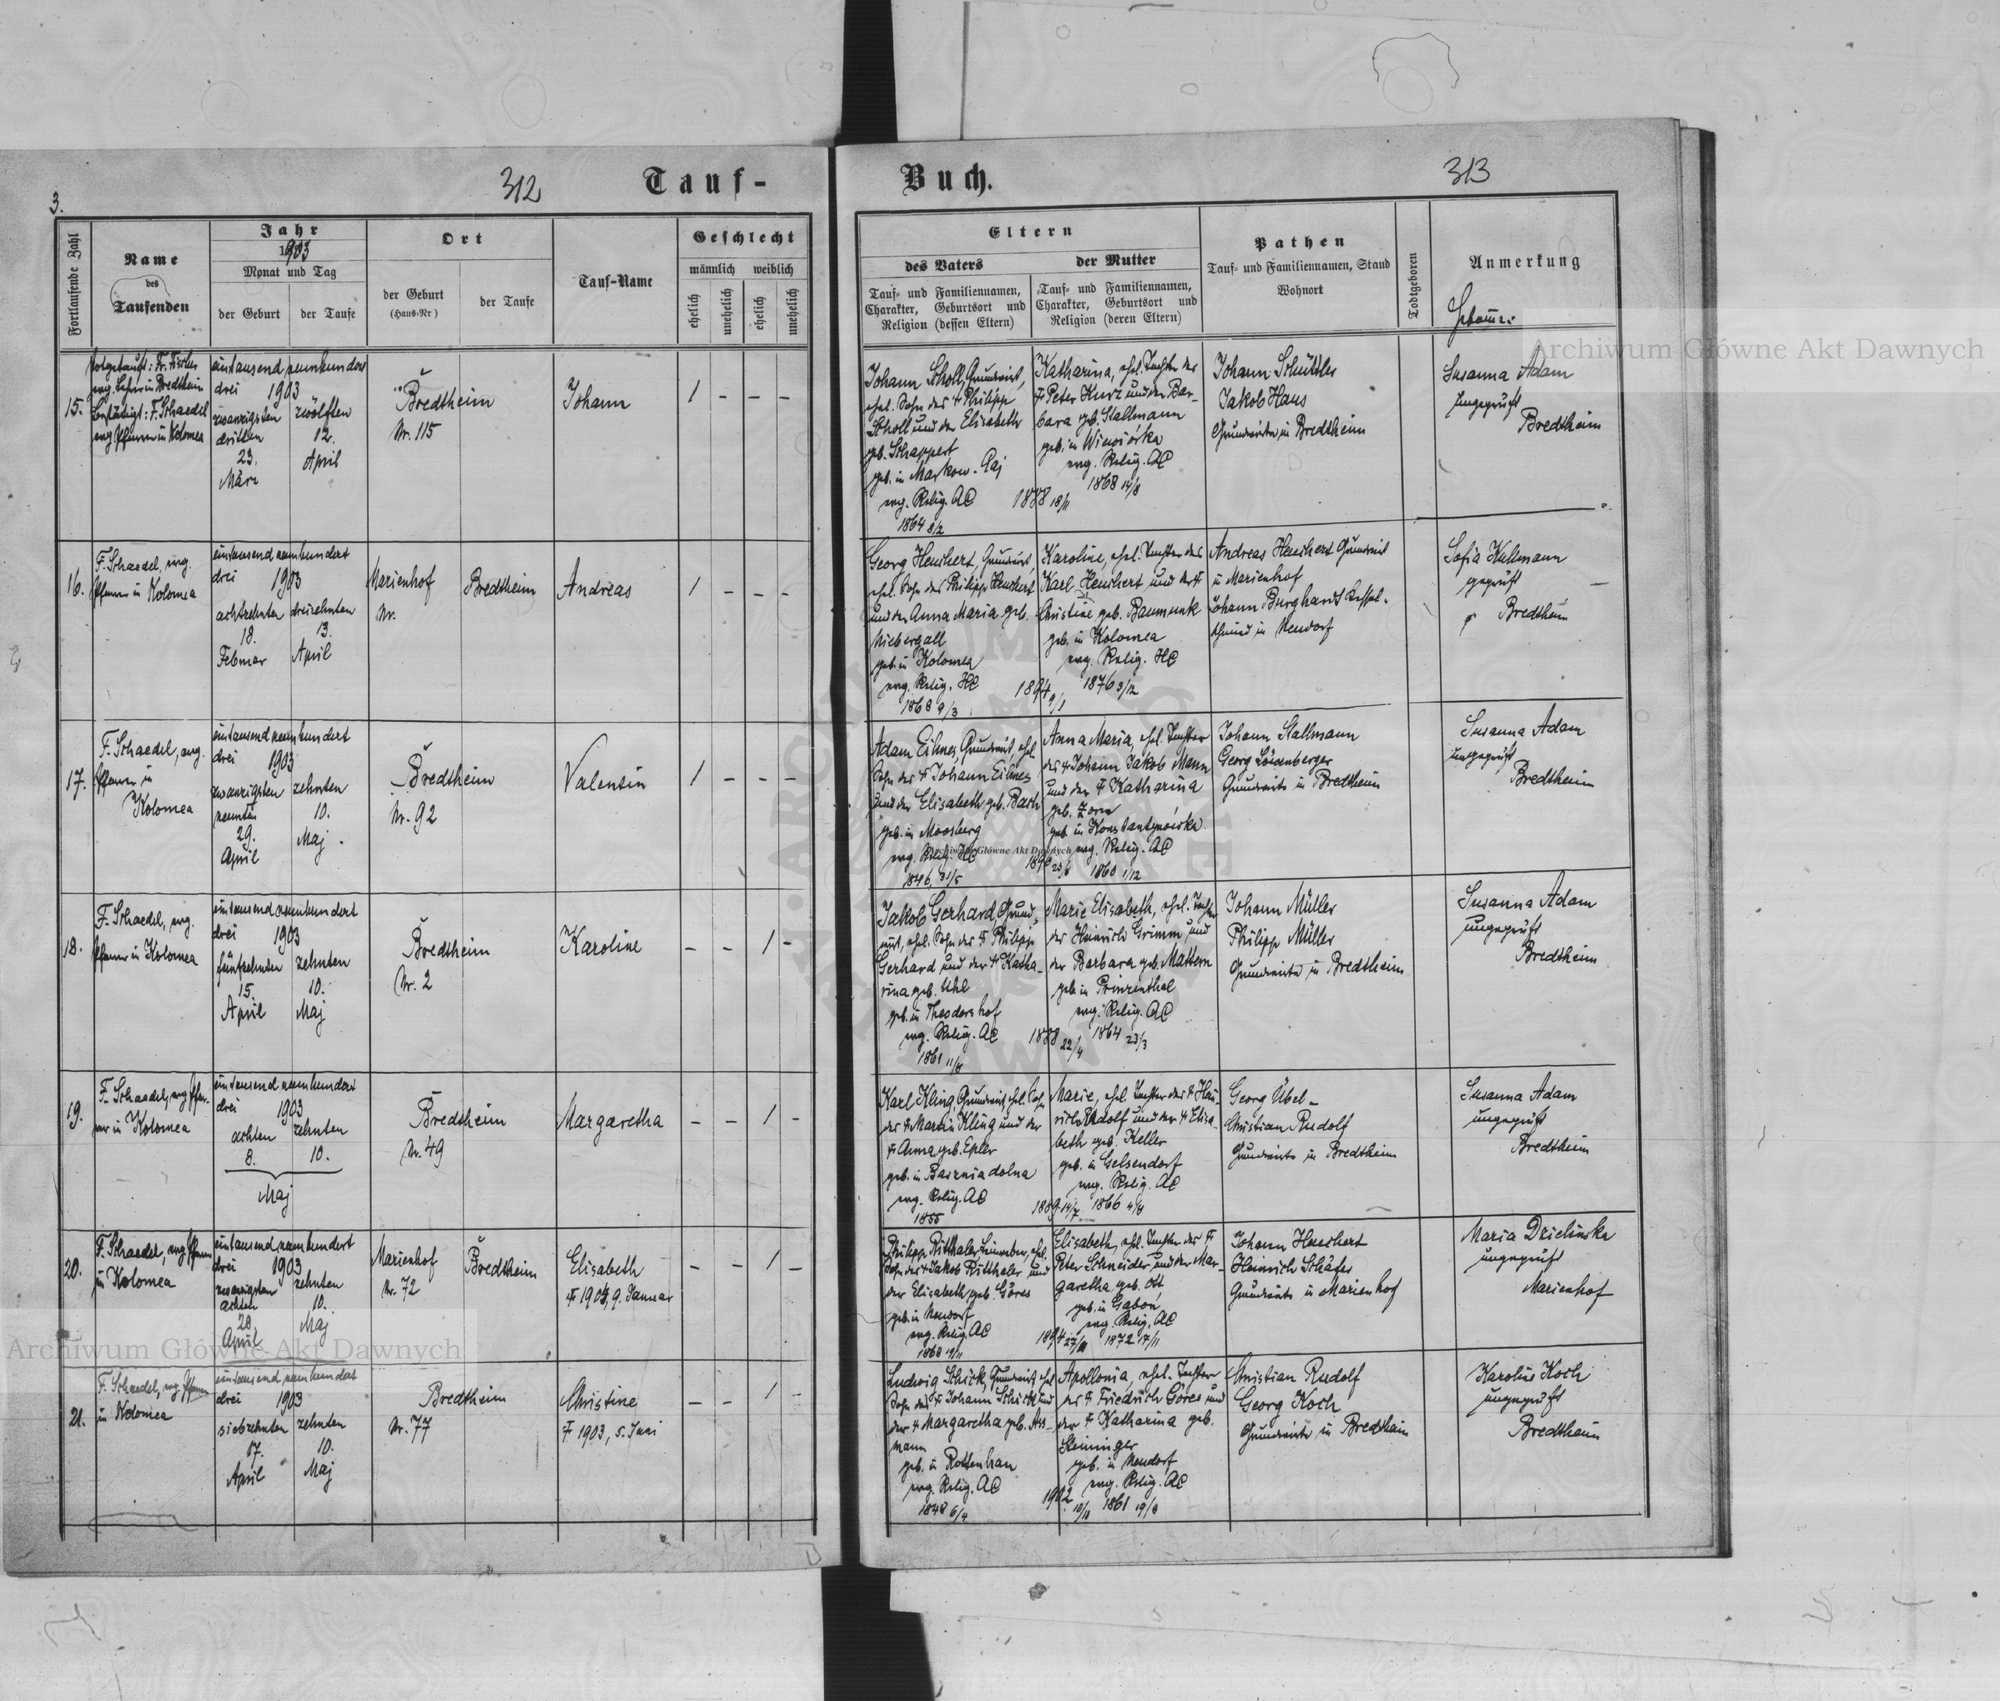 312
Tauf-
3.
Fortlaufende Zahl
Name
des
Taufenden
Jahr
1903
Monat und Tag
der Geburt
der Taufe
Ort
der Geburt
(Haus-Nr)
der Taufe
Tauf-Name
Geschlecht
männlich
weiblich
ehelich
unehelich
ehelich
unehelich
15.
Notgetauft: Fr. Fischer
evg. Lehrer in Bredtheim
bestätigt: F. Schaedel
evg Pfarrer in Kolomea
eintausend neunhundert
drei 1903
zwanzigsten zwölften
dritten 12.
23. April
März
Bredtheim
Nr. 115
Johann
1 - - -
16.
F. Schaedel, evg.
Pfarrer in Kolomea
eintausend neunhundert
drei 1903
achtzehnten dreizehnten
18. 13.
Februar April
Marienhof
Nr.
Bredtheim
Andreas
1 - - -
17.
F. Schaedel, evg.
Pfarrer in
Kolomea
eintausend neunhundert
drei 1903
zwanzigsten zehnten
neunten 10.
29. Maj.
April
Bredtheim
Nr. 92
Valentin
1 - - -
18.
F. Schaedel, evg.
Pfarrer in Kolomea
eintausend neunhundert
drei 1903
fünfzehnten zehnten
15. 10.
April Maj
Bredtheim
Nr. 2
Karoline
- - 1 -
19.
F. Schaedel, evg Pfar-
rer in Kolomea
eintausend neunhundert
drei 1903
achten zehnten
8. 10.
Maj
Bredtheim
Nr. 49
Margaretha
- - 1 -
20.
F. Schaedel, evg Pfarrer
in Kolomea
eintausend neunhundert
drei 1903
zwanzigsten zehnten
achten 10.
28. Maj
April
Marienhof
Nr. 72
Bredtheim
Elisabeth
9. Januar
- - 1 -
21.
F. Schaedel, evg Pfarrer
in Kolomea
eintausend neunhundert
drei 1903
siebzehnten zehnten
17. 10.
April Maj
Bredtheim
Nr. 77
Christine
† 1903, 5. Juni
- - 1 -
Buch.
313
Eltern
des Vaters
Tauf- und Familiennamen,
Charakter, Geburtsort und
Religion (dessen Eltern)
der Mutter
Tauf- und Familiennamen,
Charakter, Geburtsort und
Religion (deren Eltern)
Pathen
Tauf- und Familiennamen, Stand
Wohnort
Todtgeboren
Anmerkung
Johann Scholl, Grundwirt,
ehel. Sohn des † Philipp
Scholl und der Elisabeth
geb. Schappert
geb. in Markow. Gaj
evg. Relig. AC
1864 8/2
1888 18/11
Katharina, ehel. Tochter des
† Peter Kurz und der Bar-
bara geb. Stallmann
geb. in Wincsiórka
evg. Relig. AC
1868 14/8
Johann Schüttler
Jakob Haus
Grundwirte in Bredtheim
Susanna Adam
ungeprüft
Bredtheim
Georg Heuchert, Grundwirt,
ehel. Sohn des Philipp Heuchert
und der Anna Maria geb.
Niebergall
geb. in Kolomea
evg. Relig. HC
1868 9/3
1894 9/1
Karoline, ehel. Tochter des
Karl Heuchert und der †
Christine geb. Baumunk
geb. in Kolomea
evg. Relig. HC
1876 3/12
Andreas Heuchert Grundwirt
in Marienhof
Johann Burghardt Kessel-
schmied in Neudorf
Sofia Kullmann
geprüft
Bredtheim
Adam Eilmes, Grundwirt, ehel.
Sohn des † Johann Eilmes
und der Elisabeth geb. Bach
geb. in Moosberg
evg. Relig. HC
1846, 31/5
Anna Maria, ehel. Tochter
des † Johann Jakob Mann
und der † Katharina
geb. Zorn
geb. in Konstantynówka
evg. Relig. AC
1860 1/12
Johann Stallmann
Georg Löwenberger
Grundwirte in Bredtheim
Susanna Adam
ungeprüft
Bredtheim
Jakob Gerhard, Grund-
wirt, ehel. Sohn des † Philipp
Gerhard und der † Katha-
rina geb. Uhl
geb. in Theodorshof
evg. Relig. AC
1861 11/4
1888 22/4
Marie Elisabeth, ehel. Tochter
des Heinrich Grimm und
der Barbara geb. Mattern
geb. in Prinzenthal
evg. Relig. AC
1864 23/3
Johann Müller
Philipp Müller
Grundwirte in Bredtheim
Susanna Adam
ungeprüft
Bredtheim
Karl Kling, Grundwirt, ehel. Sohn
des † Martin Kling und der
† Anna geb. Epler
geb. in Baznia dolna
evg. Relig. AC
1855
1889 14/7
Marie, ehel. Tochter des † Hein-
rich Rudolf und der † Elisa-
beth geb. Keller
geb. in Gelsendorf
evg. Relig. AC
1866 4/4
Georg Übel -
Christian Rudolf
Grundwirte in Bredtheim
Susanna Adam
ungeprüft
Bredtheim
Philipp Ritthaler, Leinweber, ehel.
Sohn des † Jakob Ritthaler und
der Elisabeth geb. Göres
geb. in Neudorf
evg. Relig. AC
Elisabeth, ehel. Tochter des †
Peter Schneider und der Mar-
garetha geb. Ott
geb. in Gabon
evg. Relig. AC
1872 17/11
Johann Heuchert
Heinrich Schäfer
Grundwirte in Marienhof
Maria Dzielinska
ungeprüft
Marienhof
Ludwig Schick, Grundwirt, ehel.
Sohn des † Johann Schick und
der † Margaretha geb. Ass-
mann
geb. in Rottenhan
evg. Relig. AC
1848 6/4
Apollonia, ehel. Tochter
des † Friedrich Göres und
der † Katharina geb.
Steininger
geb. in Neudorf
evg. Relig. AC
1861 19/8
Christian Rudolf
Georg Koch
Grundwirte in Bredtheim
Karoline Koch
ungeprüft
Bredtheim
Archiwum Główne Akt Dawnych
Archiwum Główne Akt Dawnych
Archiwum Główne Akt Dawnych